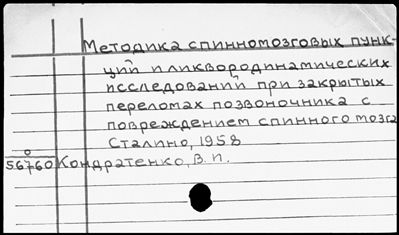 Методика спинномозговых пунк-
ций и ликвородинамических
исследований при закрытых
переломах позвоночника с
повреждением спинного мозга
Сталино, 1958
0
56760 Кондратенко, В. П.